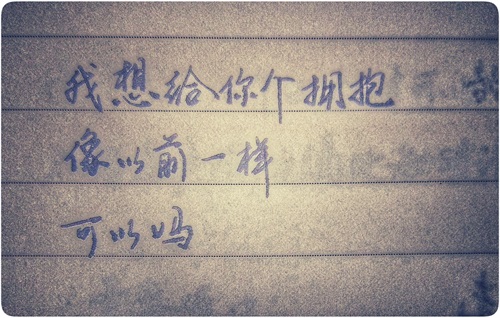 我想给你个拥抱
像以前一样
可以吗